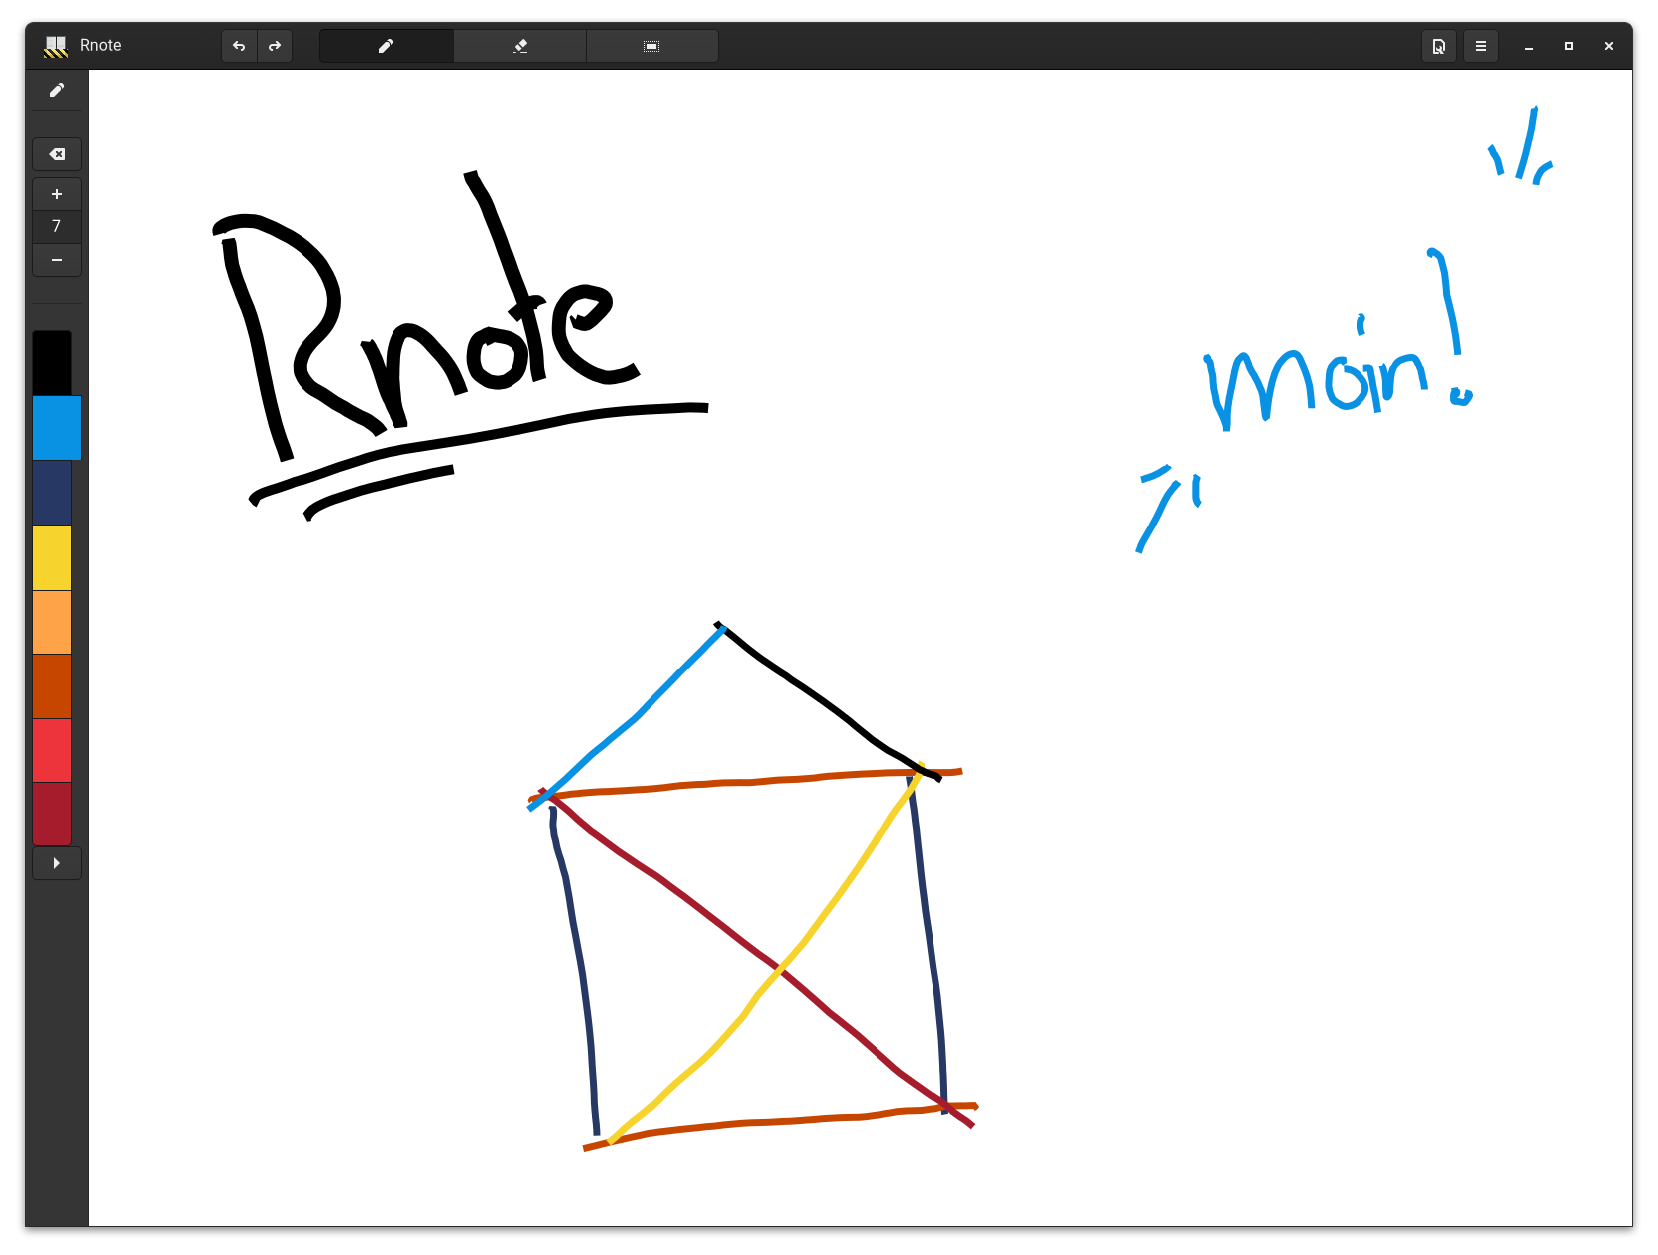 Rnote
7
Rnote
moin!